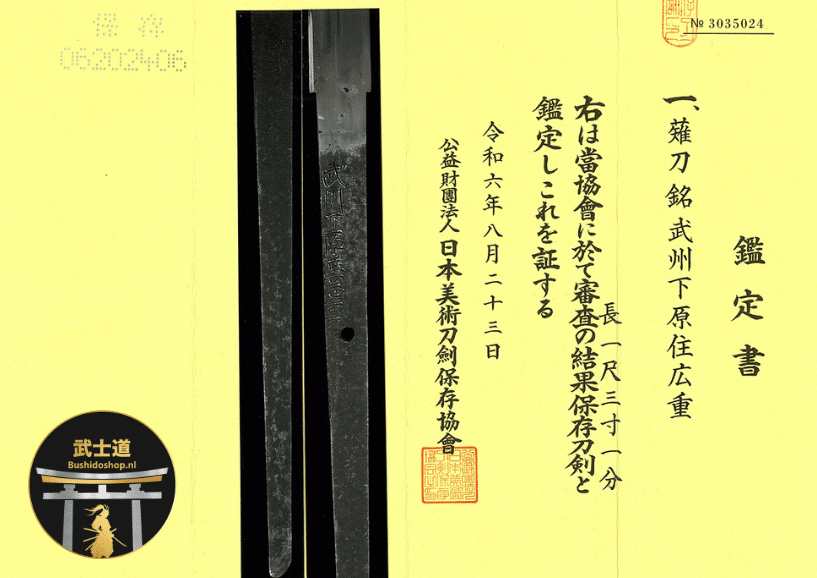 № 3035024
鑑定書
一、薙刀 銘 武州下原住広重
長一尺三寸一分
右は當協會に於て審査の結果保存刀剣と
鑑定しこれを証する
令和六年八月二十三日
公益財團法人 日本美術刀劍保存協會
武州下原住広重
保存
06202406
武士道
Bushidoshop.nl